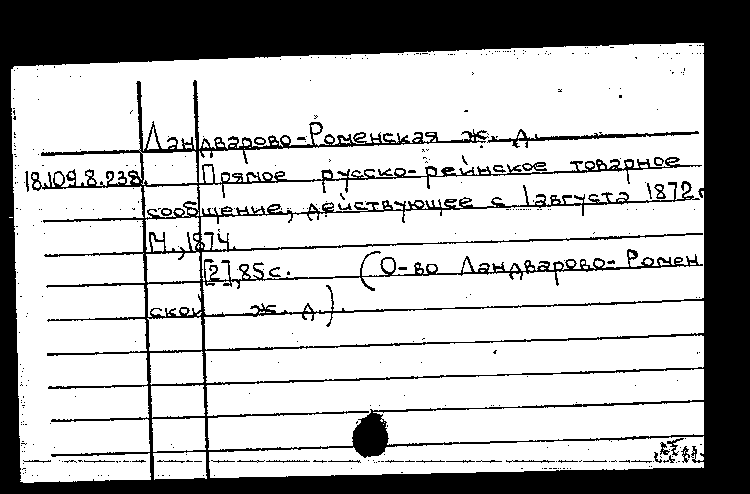 Ландварово-Роменская ж. д.
18.109.8.238. Прямое русско-рейнское товарное
сообщение, действующее с 1 августа 1872 г
М., 1874.
[2], 85 с. (О-во Ландварово-Ромен
ской ж. д.).